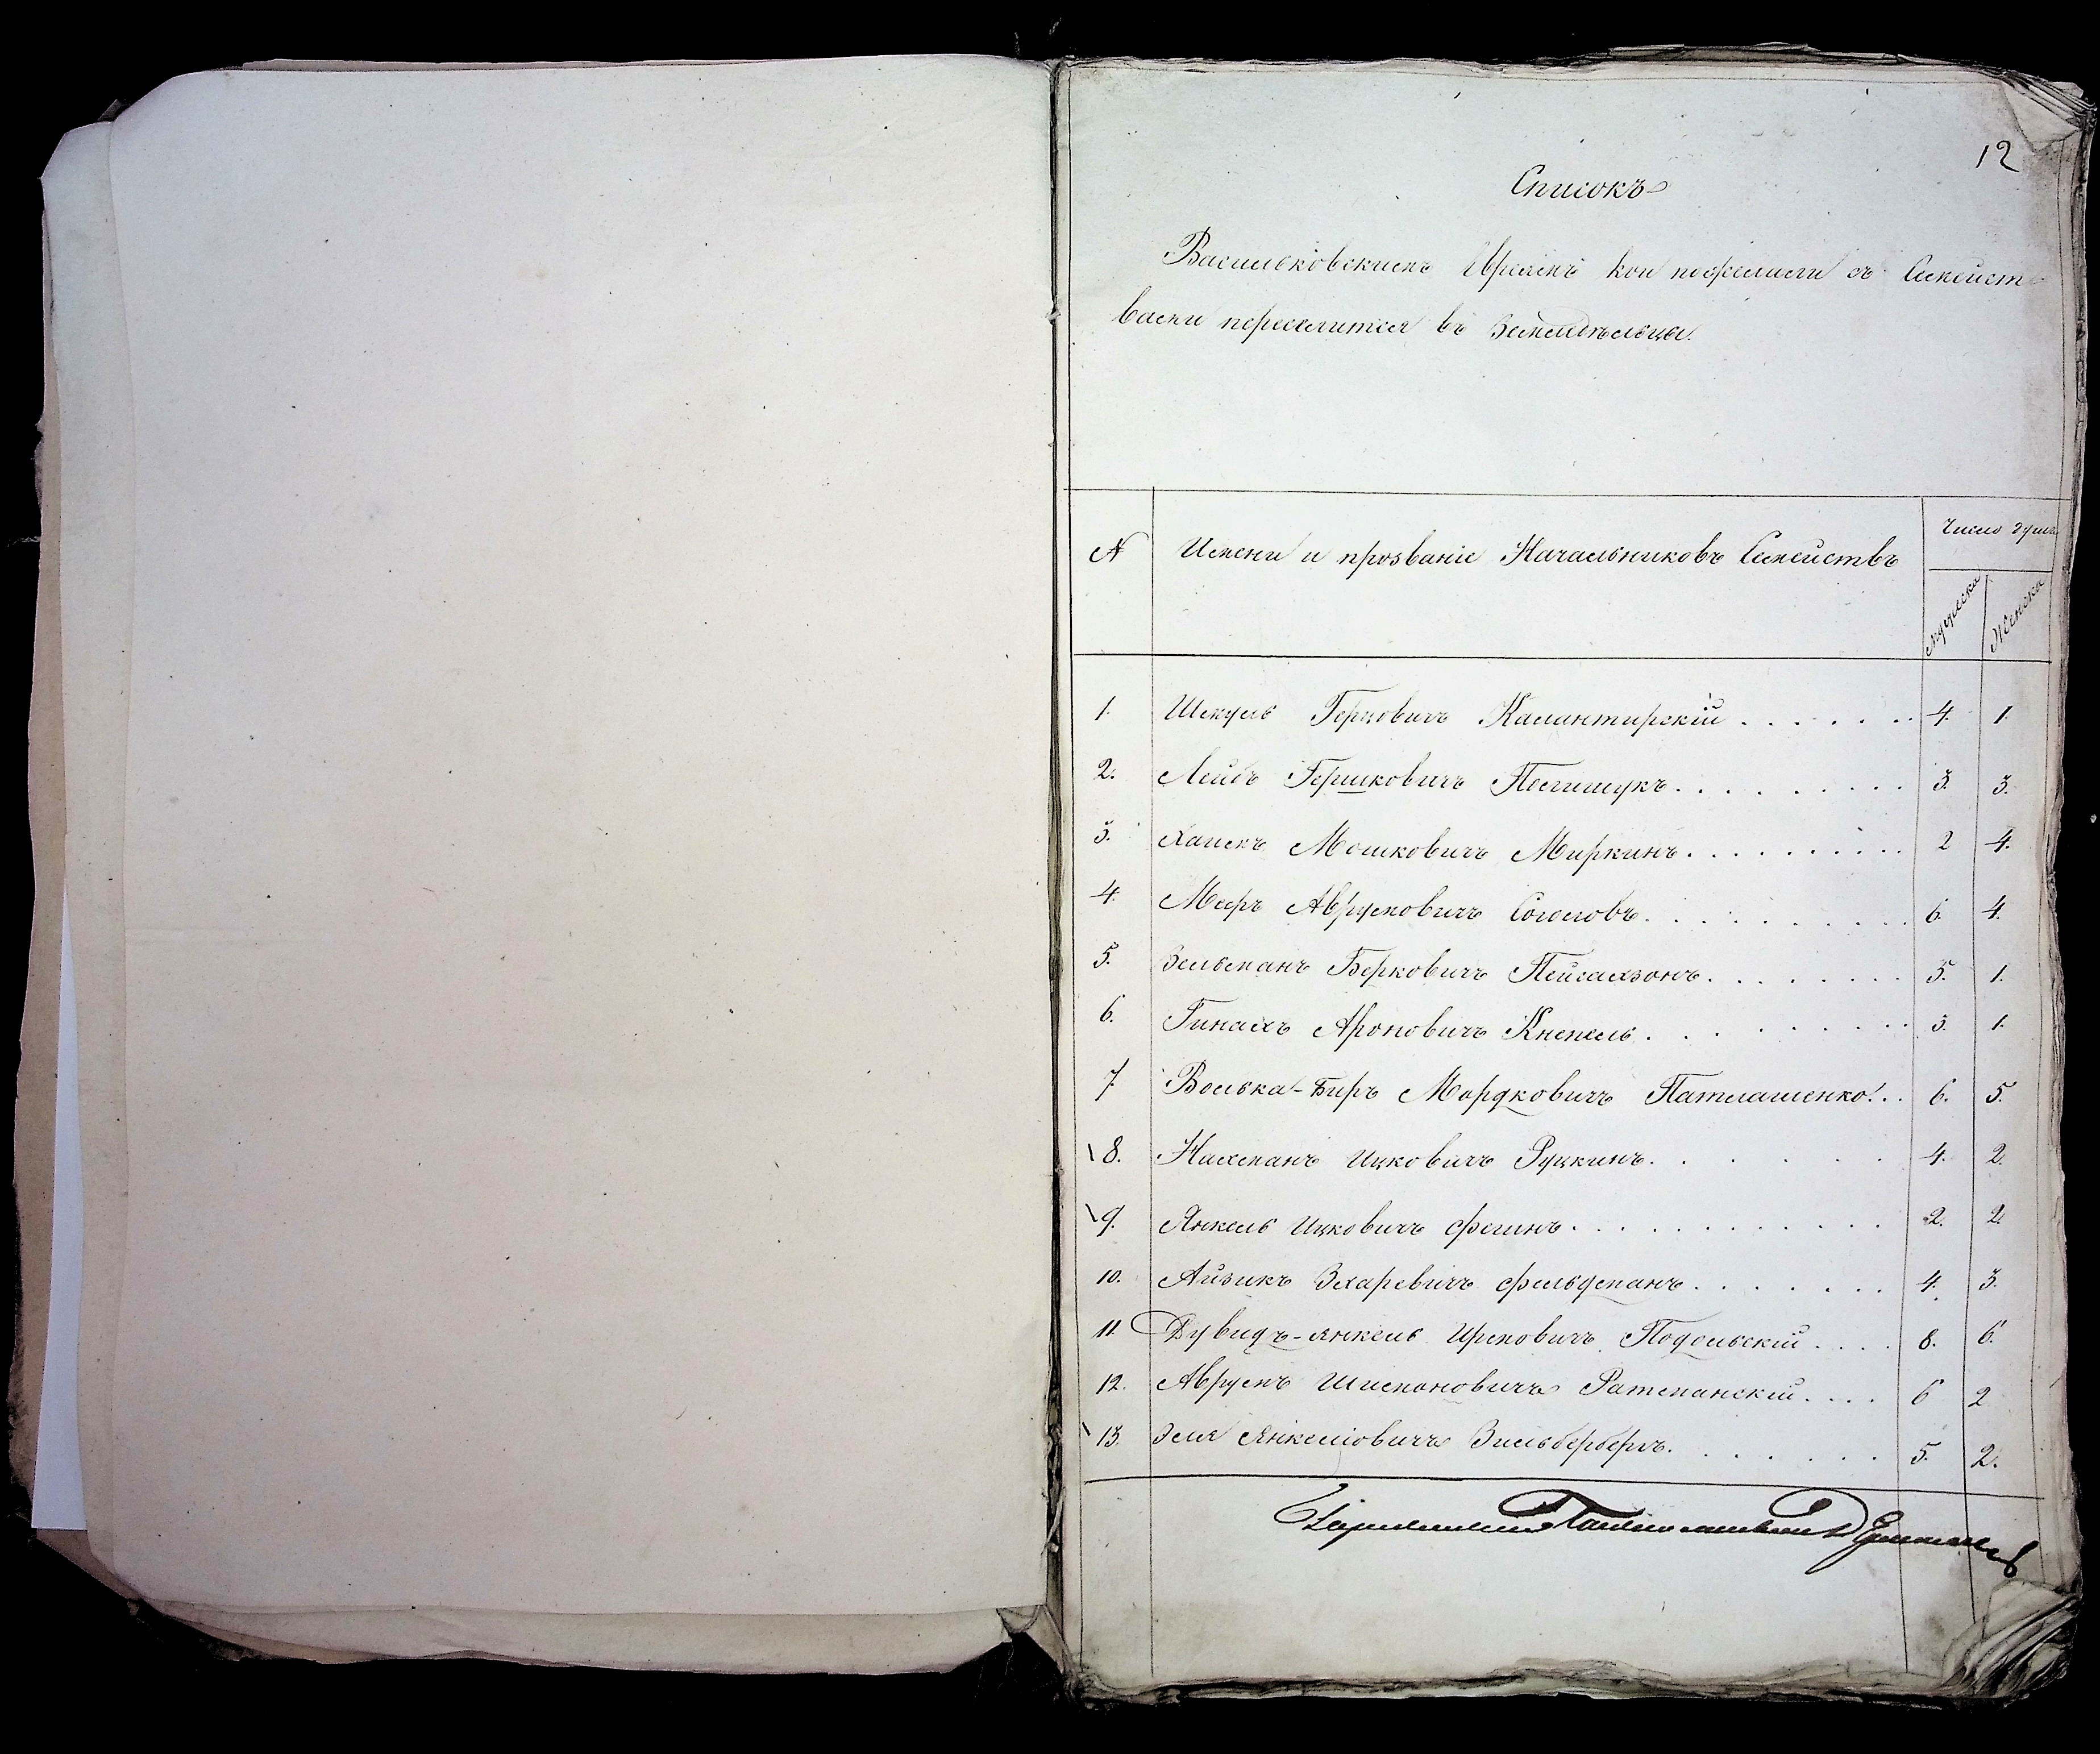 12
Списокъ
Васильковскимъ Евреямъ кои пожелали съ Семейст-
вами переселится въ Земледѣльцы.
№ Имени и прозваніе Начальниковъ Семействъ Число душъ
мужеска Женска
1. Шмуль Герцовичъ Калантирскій 4. 1.
2. Лейбъ Гершковичъ Полищукъ 3. 3.
3. Хаимъ Мошковичъ Миркинъ 2 4.
4. Мееръ Аврумовичъ 6. 4.
5. Зельманъ Берковичъ Пейсахзонъ 5. 1.
6. Гинахъ Ароновичъ 3. 1.
7 Волька-Биръ Мордковичъ Патлашенко 6. 5.
8. Нахманъ Ицковичъ Руцкинъ 4. 2.
9. Янкель Ицковичъ Фегинъ 2. 2.
10. Айзикъ Зхаревичъ Фельдманъ 4. 3.
11. Дувидъ-Янкель Ирмовичъ Подольскій 8. 6.
12. Аврумъ Шлемоновичъ Ратманскій 6 2
13. Зеля Янкеліовичъ Зильбербергъ. 5. 2.